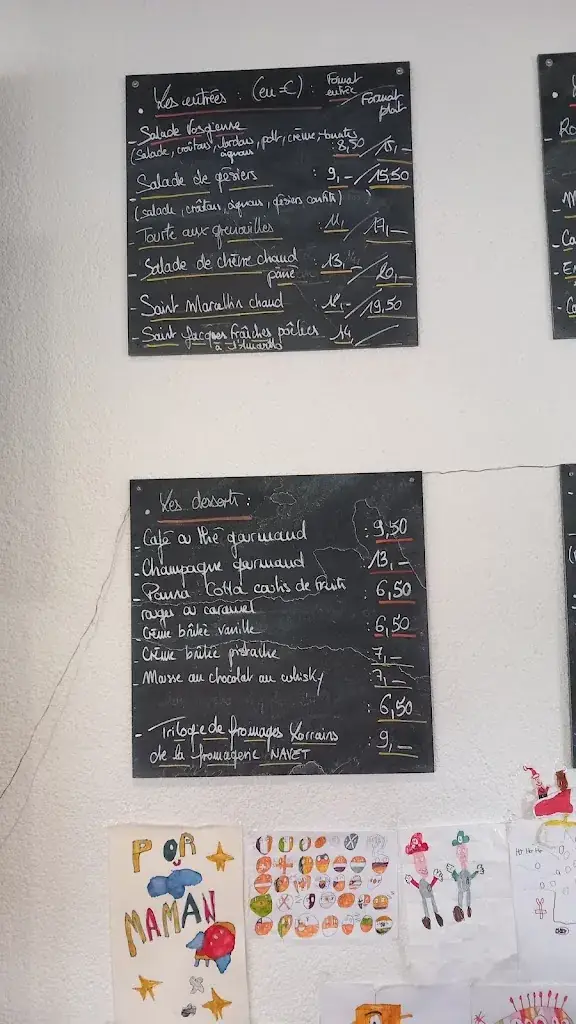 . Les entrées : (en €) : Format entrée / Format plat
- Salade Vosgienne
(salade, croûtons, lardons, poth, crème, tomates : 8,50 / 15,-
oignons
- Salade de gésiers : 9,- / 15,50
(salade, croûtons, oignons, gésiers confits)
- Tourte aux grenouilles : 11,- / 17,-
- Salade de chèvre chaud : 13,- / 20,-
pané
- Saint Marcellin chaud : 12,- / 19,50
- Saint Jacques fraîches poêlées : 14,
. Les desserts :
- Café ou thé gourmand : 9,50
- Champagne gourmand : 13,-
- Panna Cotta coulis de fruits : 6,50
rouges ou caramel
- Crème brûlée vanille : 6,50
- Crème brûlée pistache : 7,-
- Mousse au chocolat au whisky : 7,-
: 6,50
- Trilogie de fromages Lorrains : 9,-
de la fromagerie NAVET
POR
MAMAN